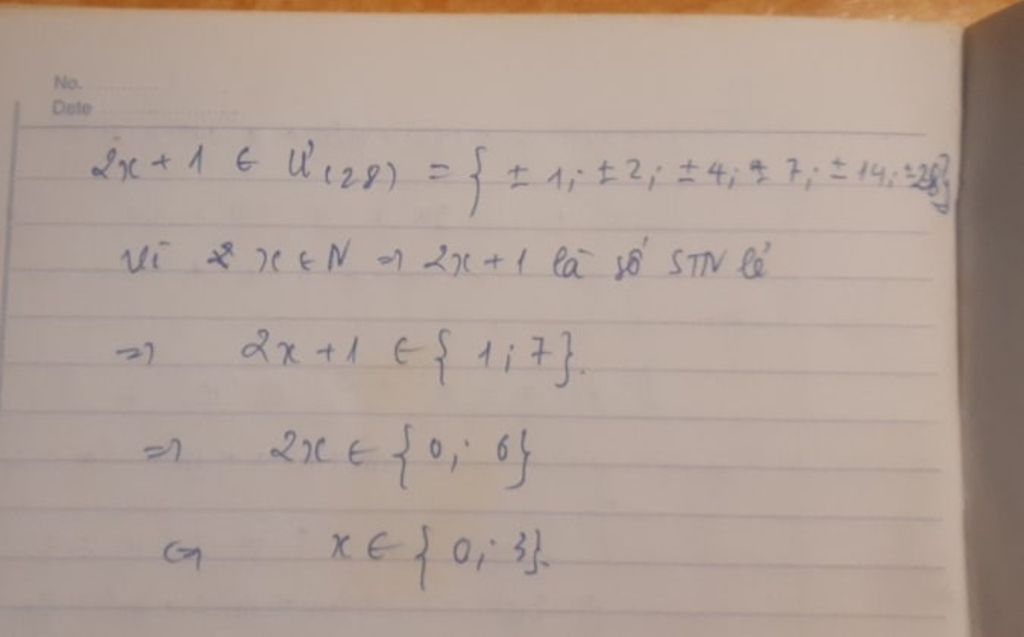 No.
Date
2x + 1 ∈ Ư(28) = { ± 1; ± 2; ± 4; ± 7; ± 14; ± 28}
Vì x ∈ N ⇒ 2x + 1 là số STN lẻ
⇒ 2x + 1 ∈ { 1; 7}.
⇒ 2x ∈ { 0; 6}
⇔ x ∈ { 0; 3}.